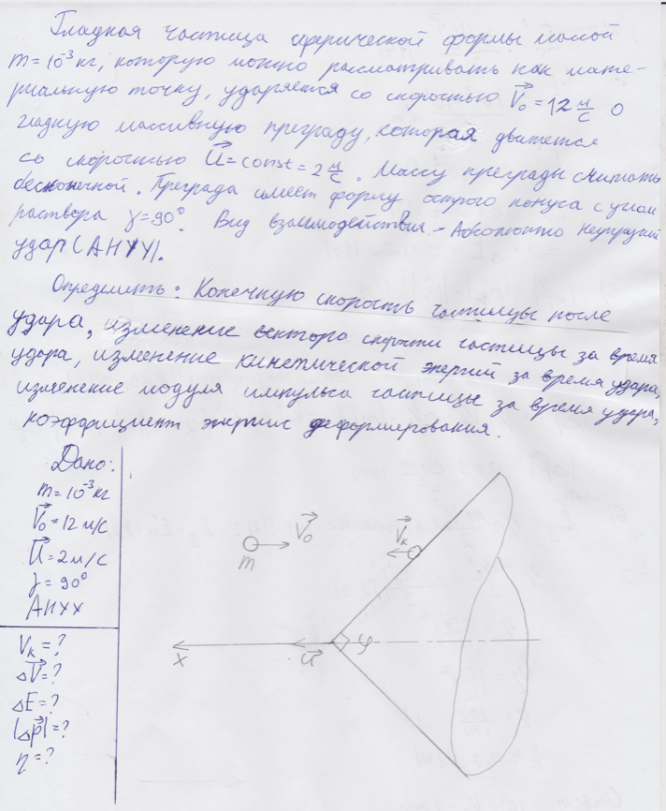 Гладкая частица сферической формы массой
m=10⁻³кг, которую можно рассматривать как мате-
риальную точку, ударяется со скоростью V₀=12 м/с о
гладкую массивную преграду, которая движется
со скоростью U=const=2 м/с. Массу преграды считать
бесконечной. Преграда имеет форму острого конуса с углом
раствора γ=90°. Вид взаимодействия - Абсолютно Неупругий
удар (АНУУ).
Определить: Конечную скорость частицы после
удара, изменение вектора скорости частицы за время
удара, изменение кинетической энергии за время удара,
изменение модуля импульса частицы за время удара,
коэффициент энергии деформирования.
Дано:
m=10⁻³кг
V₀=12 м/с
U=2 м/с
γ=90°
АНУУ
Vк=?
ΔV=?
ΔE=?
|Δp|=?
η=?
V₀
m
Vк
x
U
φ